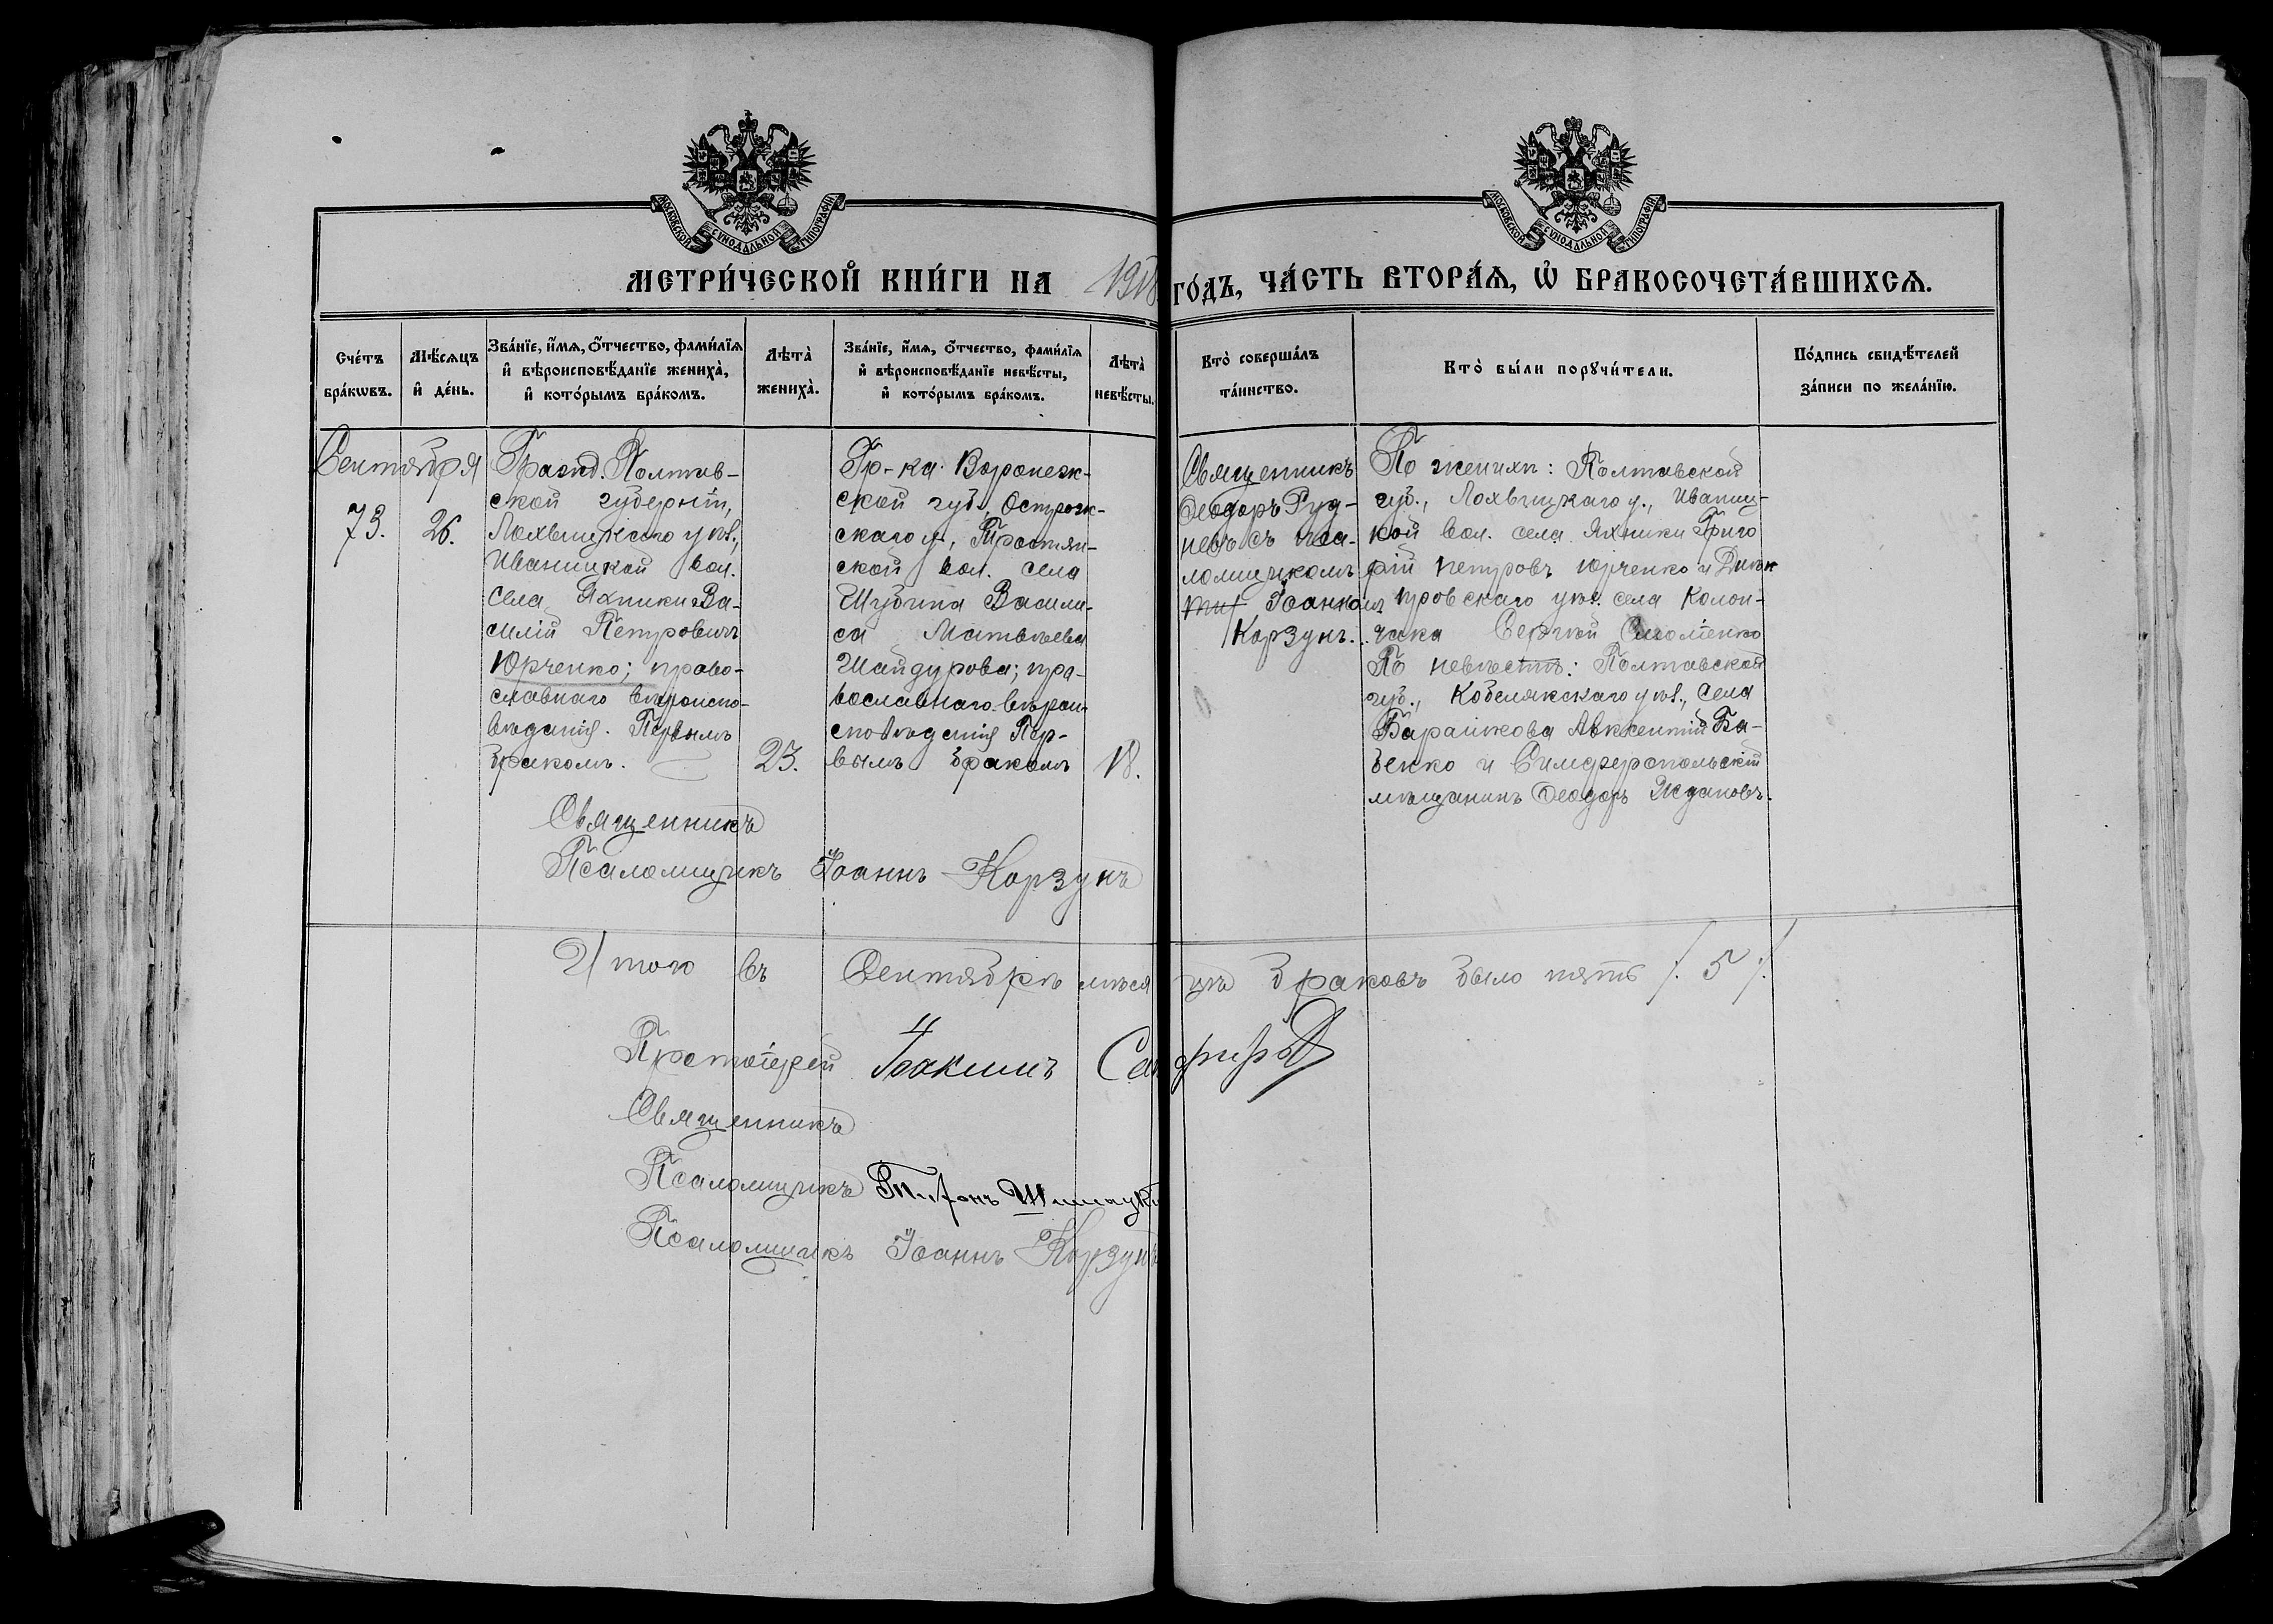 МОСКОВСКОЙ СѴНОДАЛЬНОЙ ТИПОГРАФІИ
МОСКОВСКОЙ СѴНОДАЛЬНОЙ ТИПОГРАФІИ
МЕТРИ́ЧЕСКОЙ КНИ́ГИ НА 1918 ГО́ДЪ, ЧА́СТЬ ВТОРА́Ѧ, Ѽ БРАКОСОЧЕТА́ВШИХСѦ.
Сче́тъ бра́кѡвъ.
Мѣ́сяцъ и҆ де́нь.
Зва́нїе, и҆́мѧ, ѻ҆́тчество, фами́лїѧ и҆ вѣроисповѣ́данїе жениха̀, и҆ кото́рымъ бра́комъ.
Лѣта̀ жениха̀.
Зва́нїе, и҆́мѧ, ѻ҆́тчество, фами́лїѧ и҆ вѣроисповѣ́данїе невѣ́сты, и҆ кото́рымъ бра́комъ.
Лѣта̀ невѣ́сты.
Кто̀ соверша́лъ та́инство.
Кто̀ бы́ли порꙋчи́тели.
По́дпись свидѣ́телей за́писи по жела́нїю.
Сентября
73.
26.
Гражд. Полтав-
ской губерніи,
Лохвицкаго уѣз.,
Иваницкой вол.
села Яхники Ва-
силій Петровичъ
Юрченко; право-
славнаго вѣроиспо-
вѣданія. Первымъ
бракомъ.
23.
Гр-ка Воронеж-
ской губ., Острож-
скаго у., Тростян-
ской вол. села
Шубина Васили-
са Матвѣева
Шайдурова; пра-
вославнаго вѣрои-
сповѣданія Пер-
вымъ бракомъ
18.
Священникъ
Ѳеодоръ Руд-
невъ съ пса-
ломщикомъ
Іоанномъ
Корзунъ.
По женихѣ: Полтавской
губ., Лохвицкаго у., Иваниц-
кой вол. села Яхники Григо
рій Петровъ Юрченко и Днѣп
провскаго уѣз. села Колон-
чака Сергѣй
По невѣстѣ: Полтавской
губ., Кобелякскаго уѣз., села
Барашкова Авксентій Ба-
бенко и Симферопольскій
мѣщанинъ Ѳеодоръ Ждановъ.
Священникъ
Псаломщикъ Іоаннъ Корзунъ
Итого въ Сентябрѣ мѣсяцѣ браковъ было пять /. 5 ./
Протоіерей Іоакимъ
Священникъ
Псаломщикъ Тихонъ
Псаломщикъ Іоаннъ Корзунъ